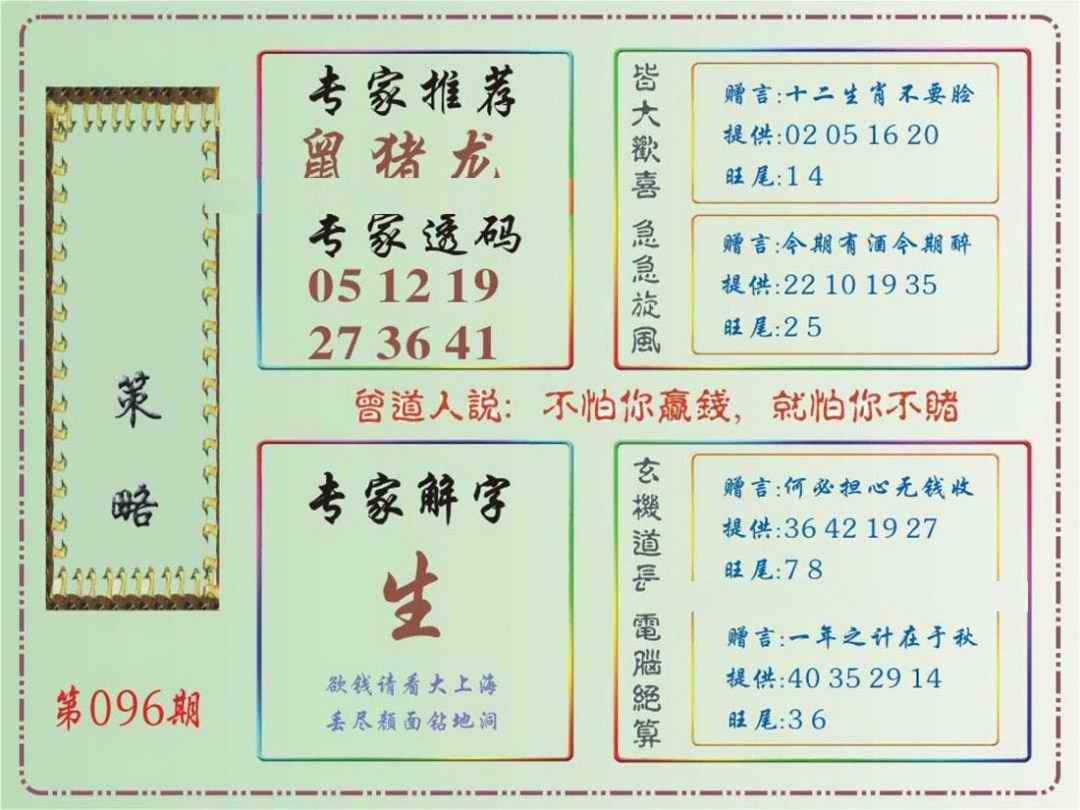 策
略
第096期
专家推荐
鼠猪龙
专家透码
05 12 19
27 36 41
皆大歡喜
赠言:十二生肖不要脸
提供:02 05 16 20
旺尾:1 4
急急旋風
赠言:今期有酒今期醉
提供:22 10 19 35
旺尾:2 5
曾道人説: 不怕你贏錢, 就怕你不賭
专家解字
生
欲钱请看大上海
丢尽颜面钻地洞
玄機道長
赠言:何必担心无钱收
提供:36 42 19 27
旺尾:7 8
電腦絕算
赠言:一年之计在于秋
提供:40 35 29 14
旺尾:3 6